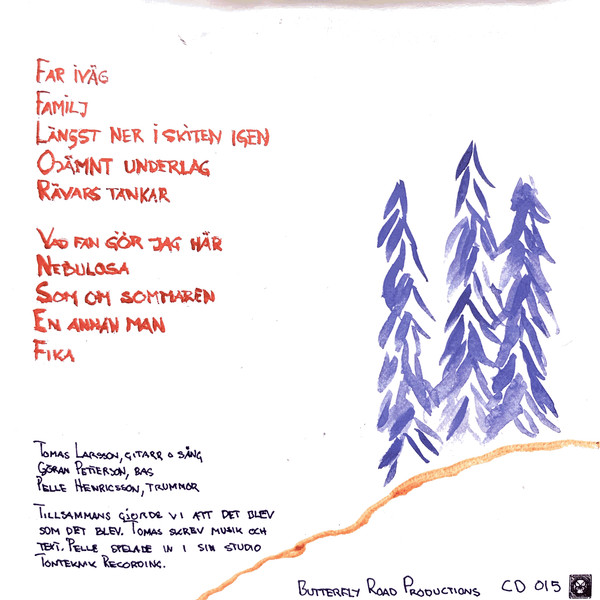 FAR IVÄG
FAMILJ
LÄNGST NER I SKITEN IGEN
OJÄMNT UNDERLAG
RÄVARS TANKAR
VAD FAN GÖR JAG HÄR
NEBULOSA
SOM OM SOMMAREN
EN ANNAN MAN
FIKA
TOMAS LARSSON, GITARR O SÅNG
GÖRAN PETTERSON, BAS
PELLE HENRICSSON, TRUMMOR
TILLSAMMANS GJORDE VI ATT DET BLEV
SOM DET BLEV. TOMAS SKREV MUSIK OCH
TEXT. PELLE SPELADE IN I SIN STUDIO
TONTEKNIK RECORDING.
BUTTERFLY ROAD PRODUCTIONS CD 015